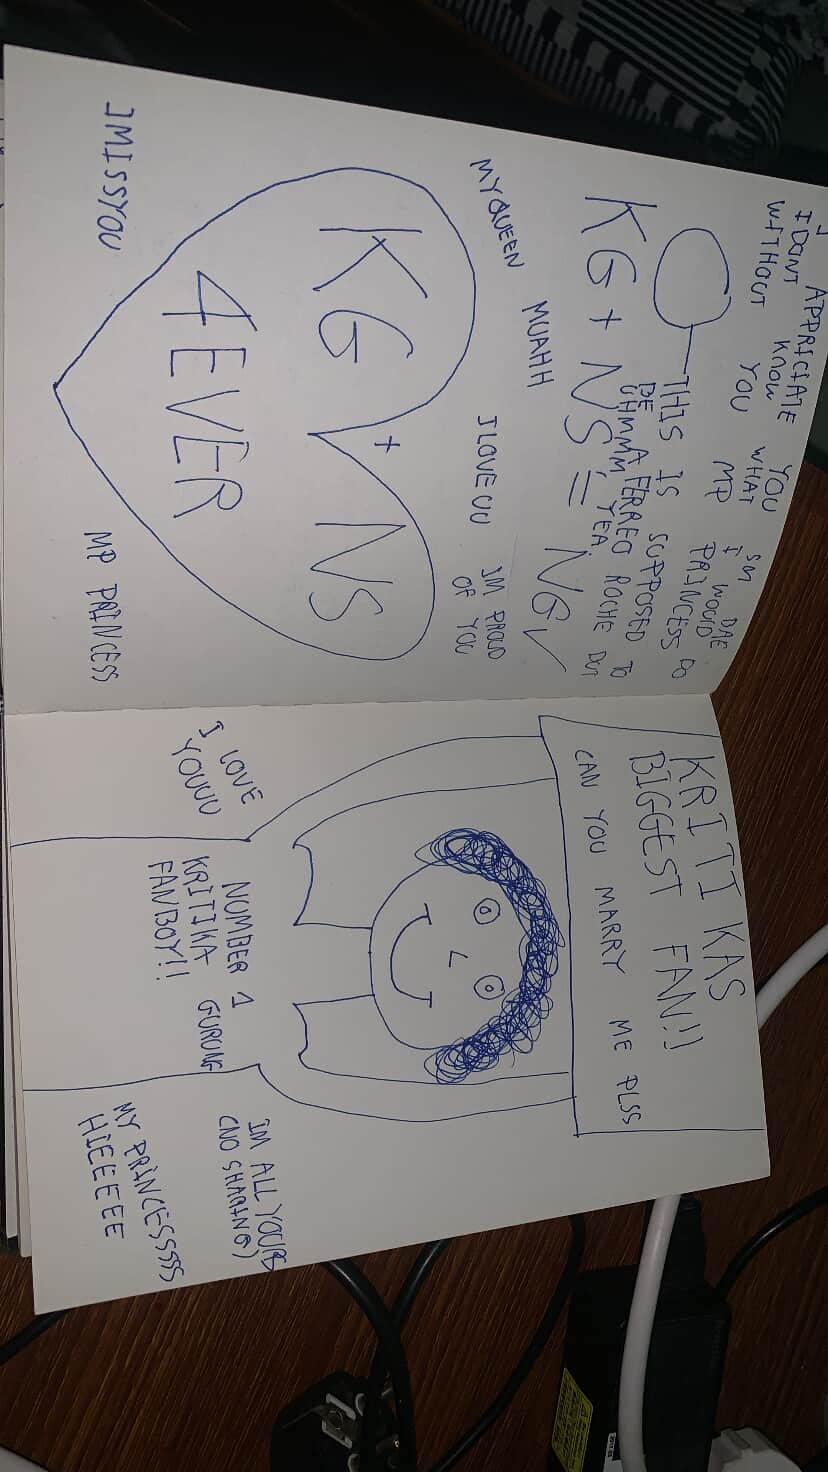 I APPRICIATE YOU SM DAE
I DONT KNOW WHAT I WOULD
WITHOUT YOU MP PRINCESS DO
THIS IS SUPPOSED TO
BE A FERREO ROCHE BUT
UHMMM, YEA
KG + NS = NG
MY QUEEN
MUAHH
I LOVE UU
IM PROUD
OF YOU
KG + NS
4EVER
I MISS YOU
MP PRINCESS
KRITIKAS
BIGGEST FAN!!
CAN YOU MARRY ME PLSS
I LOVE
YOUUU
NUMBER 1
KRITIKA GURUNG
FANBOY!!
IM ALL YOURS
(NO SHARING)
MY PRINCESSSSS
HIEEEEE